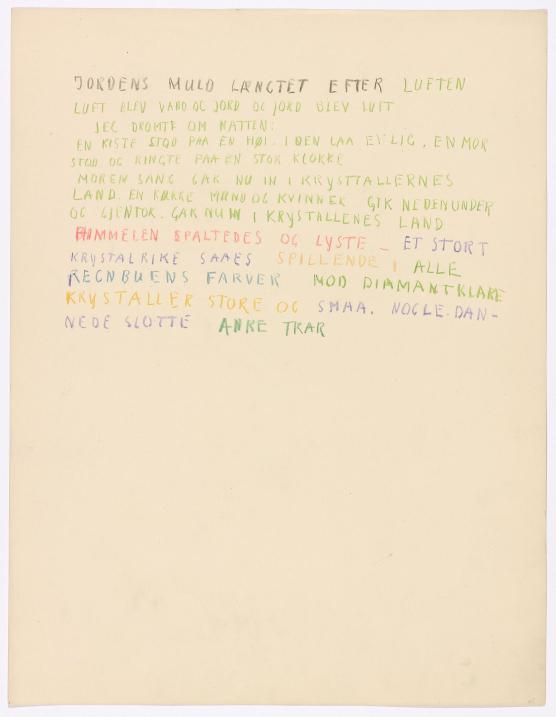 JORDENS MULD LÆNGTET EFTER LUFTEN
LUFT BLEV VAND OG JORD OG JORD BLEV LUFT
JEG DRØMTE OM NATTEN:
EN KISTE STOD PAA EN HØI. I DEN LAA ET LIG, EN MOR
STOD OG RINGTE PAA EN STOR KLOKKE
MOREN SANG GAK NU IN I KRYSTTALLERNES
LAND. EN RÆKKE MÆND OG KVINNER GIK NEDENUNDER
OG GJENTOK. GAK NU IN I KRYSTALLENES LAND
HIMMELEN SPALTEDES OG LYSTE – ET STORT
KRYSTALRIKE SAAES SPILLENDE I ALLE
REGNBUENS FARVER MOD DIAMANTKLARE
KRYSTALLER STORE OG SMAA. NOGLE DAN-
NEDE SLOTTE ANRE TRÆR